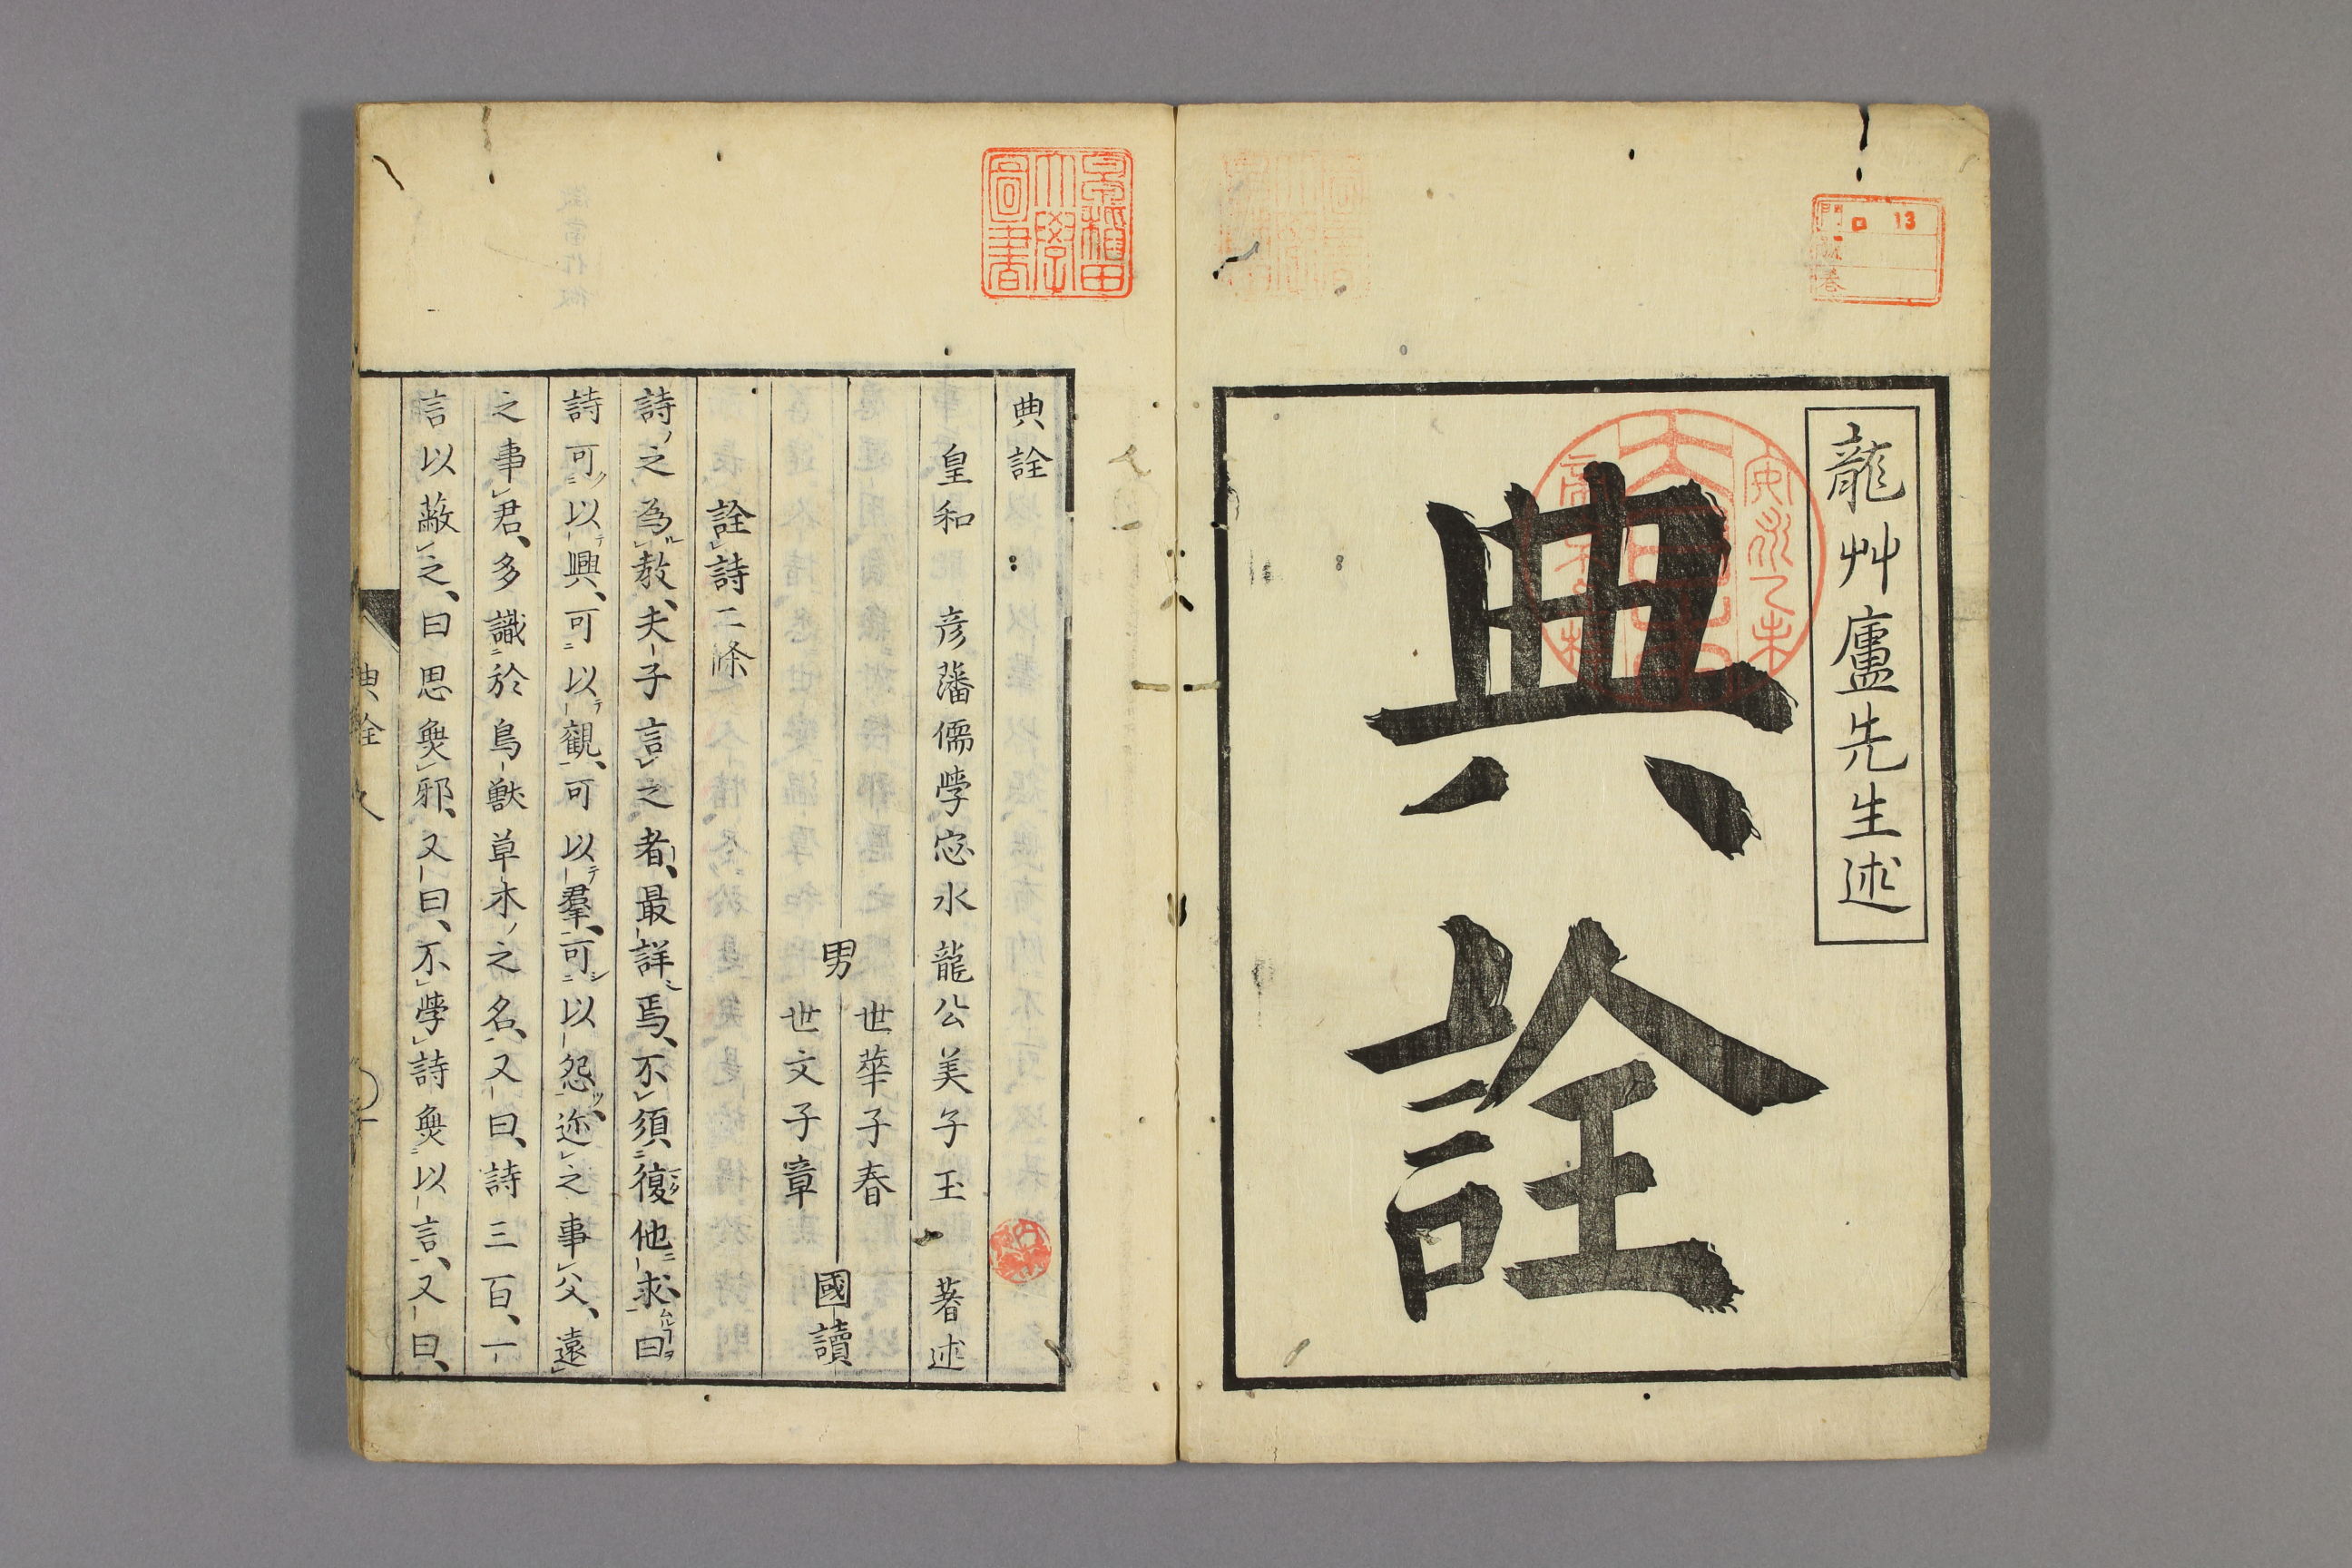 龍艸廬先生述
典詮
門
號
卷
ロ 13
安永乙未
早稲田
大學
圖書
典詮
皇和 彦藩儒學 水龍公美子玉 著述
男 世華子春
世文子章 國讀
詮詩二條
詩ノ之為ル教、夫子言之者、最詳焉、不須復他ニ求、曰
詩可以テ興、可以テ觀、可以テ羣、可以怨、迩之事父、遠
之事君、多識於鳥獸草木ノ之名、又曰、詩三百、一
言以蔽之、曰思無邪、又曰、不學詩無以言、又曰、
典詮